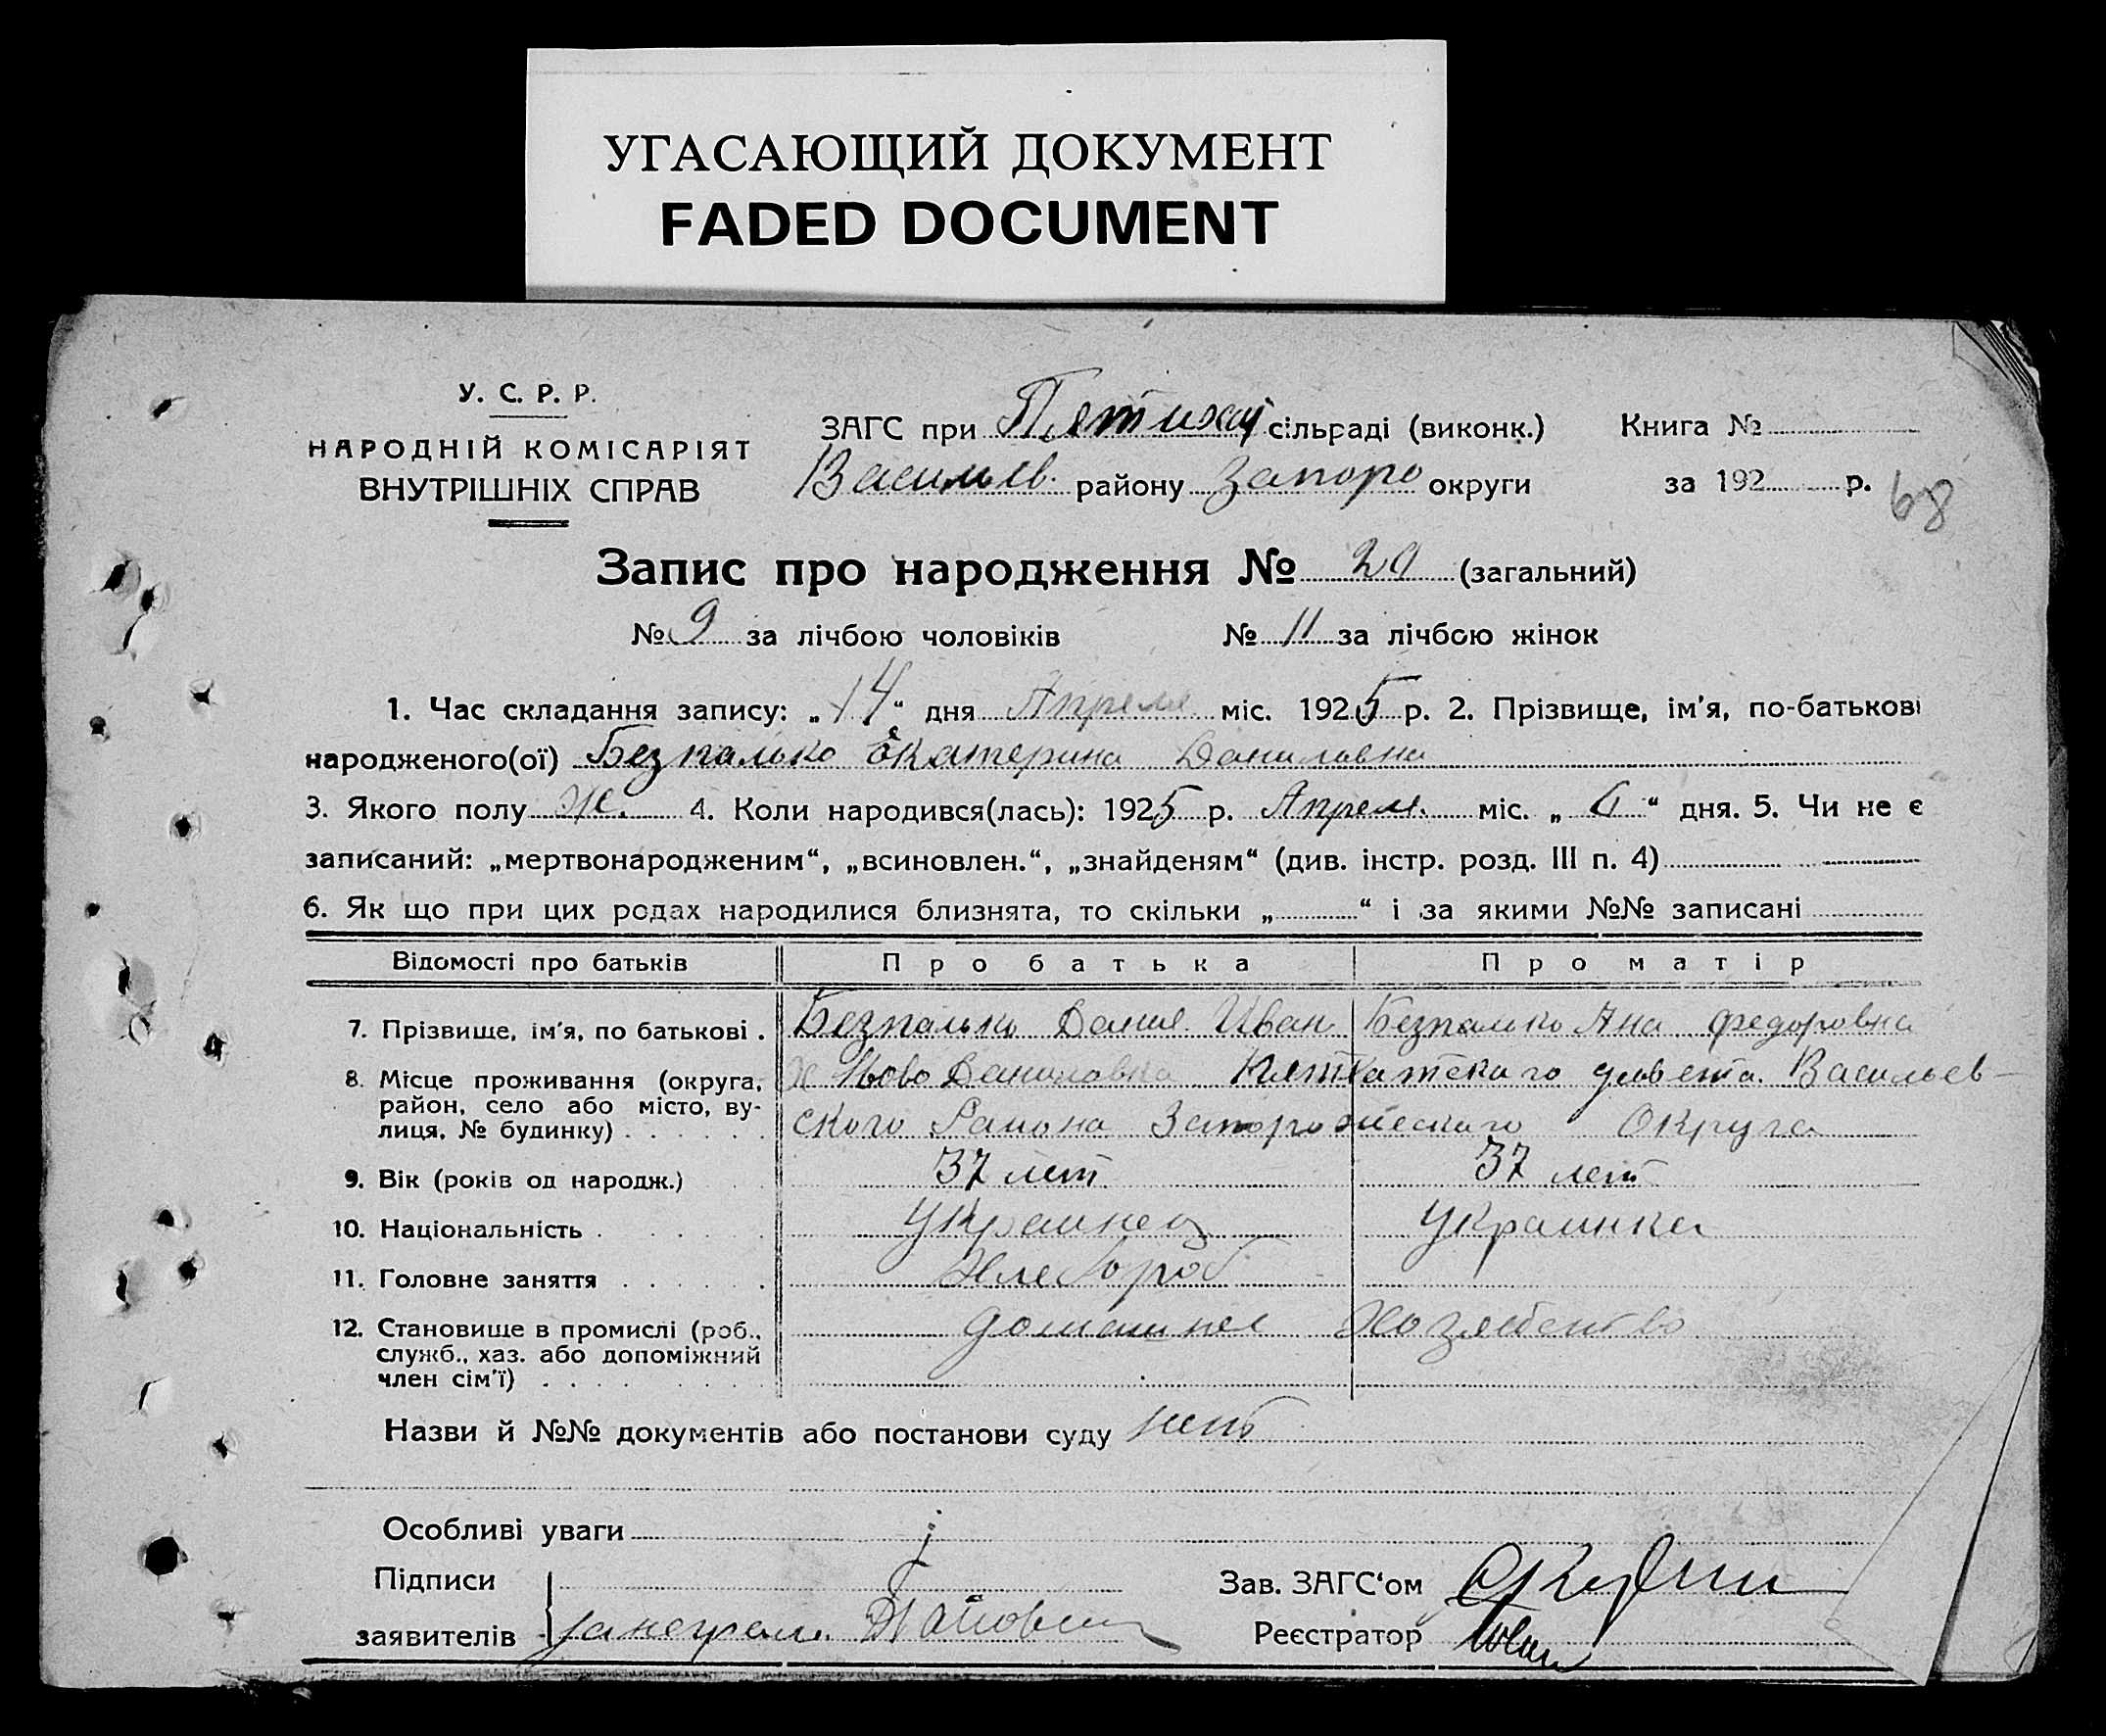 УГАСАЮЩИЙ ДОКУМЕНТ
FADED DOCUMENT
У. С. Р. Р.
НАРОДНІЙ КОМІСАРІЯТ
ВНУТРІШНІХ СПРАВ
ЗАГС при Пятихат сільраді (виконк.) Книга №
Васильев. району Запоро округи за 192 р. 68
Запис про народження № 20 (загальний)
№ 9 за лічбою чоловіків № 11 за лічбою жінок
1. Час складання запису: „14“ дня Апреля міс. 1925 р. 2. Прізвище, ім'я, по-батькові
народженого(ої) Безпалько Екатерина Даниловна
3. Якого полу Ж. 4. Коли народився(лась): 1925 р. Апрел. міс. „6“ дня. 5. Чи не є
записаний: „мертвонародженим“, „всиновлен.“, „знайденям“ (див. інстр. розд. III п. 4)
6. Як що при цих родах народилися близнята, то скільки „ “ і за якими №№ записані
Відомості про батьків Про батька Про матір
7. Прізвище, ім'я, по батькові . Безпалько Данил Иван Безпалько Ана Федоровна
8. Місце проживання (округа, х Ново Даниловка Васильев-
район, село або місто, ву- ского Района Запорожеского Округа
лиця, № будинку)
9. Вік (років од народж.) 37 лет 37 лет
10. Національність . Украинец Украинка
11. Головне заняття Хлебороб
12. Становище в промислі (роб., домашнее Хозяйство
служб., хаз. або допоміжний
член сім'ї)
Назви й №№ документів або постанови суду нет
Особливі уваги
Підписи Зав. ЗАГС‘ом
заявителів Реєстратор